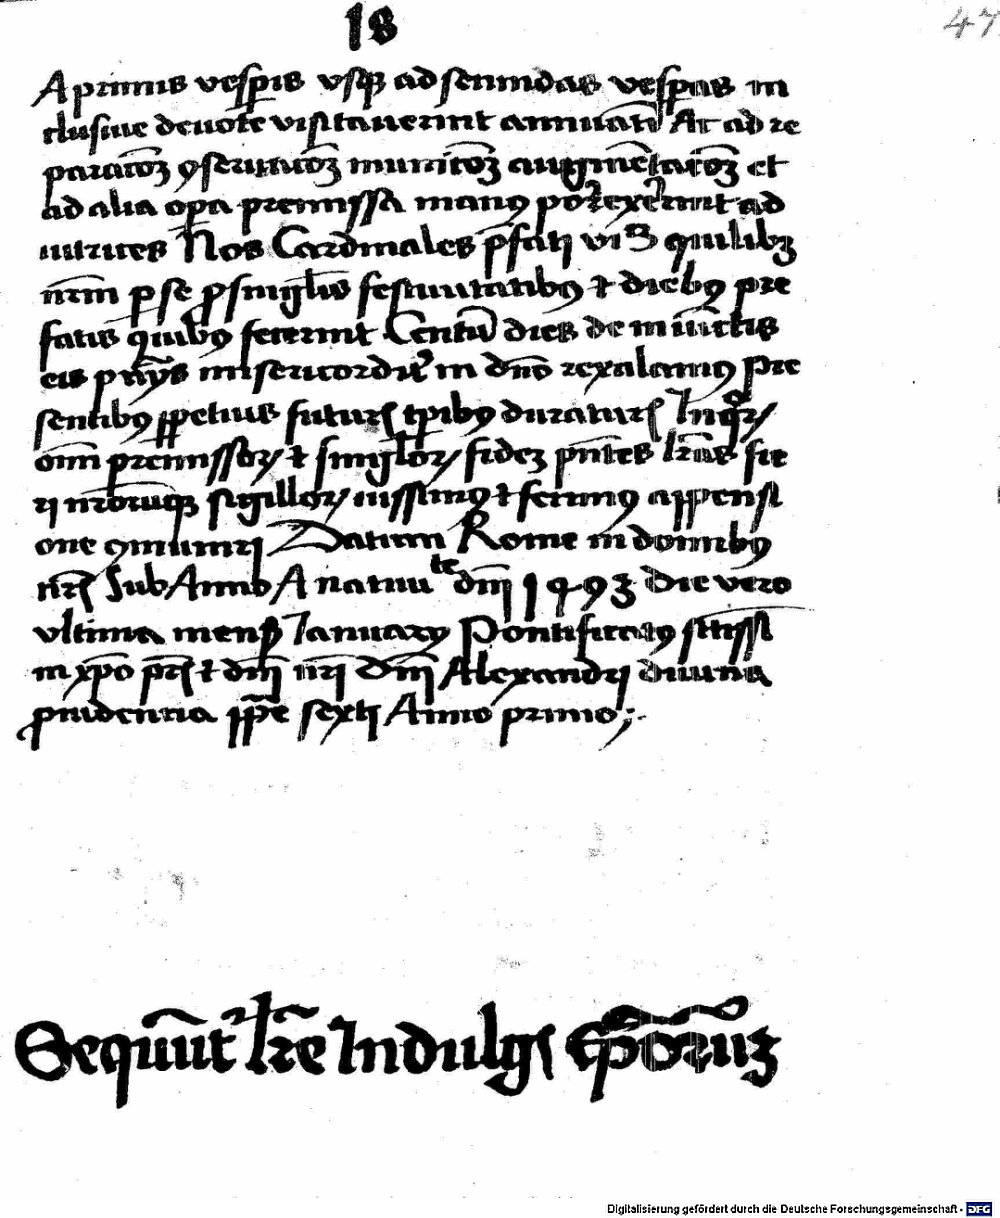 18
47
A primis vesperis vsq; ad secundas vesperas in
clusiue deuote visitauerint annuatī Ac ad re
paracōȝ ꝯseruacōȝ munitōȝ augmētacōȝ et
ad alia opa premissa manꝯ porrexerint ad
iutrices Nos Cardinales p̄fati vꝫ quilibȝ
nr̄m p se ꝓ singl̄is festiuitatibꝯ ⁊ diebꝯ pre
fatis quibꝯ fecerint Centū dies de iniūctis
eis pn̄ijs misericorditer in dn̄o relaxamꝯ Pre
sentibꝯ ꝑpetuis futuris tp̄ibꝯ duraturis In quorꝝ
om̄i premissorꝝ ⁊ singl̄orꝝ fidem pn̄tes lr̄as fie
ri nr̄orumqꝫ sigillorꝝ iussimꝯ ⁊ fecimꝯ appensi
one ꝯmuniri Datum Rome in domibꝯ
nr̄is Sub Anno A natiuitate dn̄i 1493 Die vero
vltima mens̄ Ianuarij Pontificatꝯ sc̄tissi
mi xp̄o pr̄is ⁊ dn̄i nr̄i dn̄i Alexandri diuina
prudencia pp̄e sexti Anno primo ;.
Sequūt lr̄e Indulgēs ep̄orūȝ
Digitalisierung gefördert durch die Deutsche Forschungsgemeinschaft - DFG